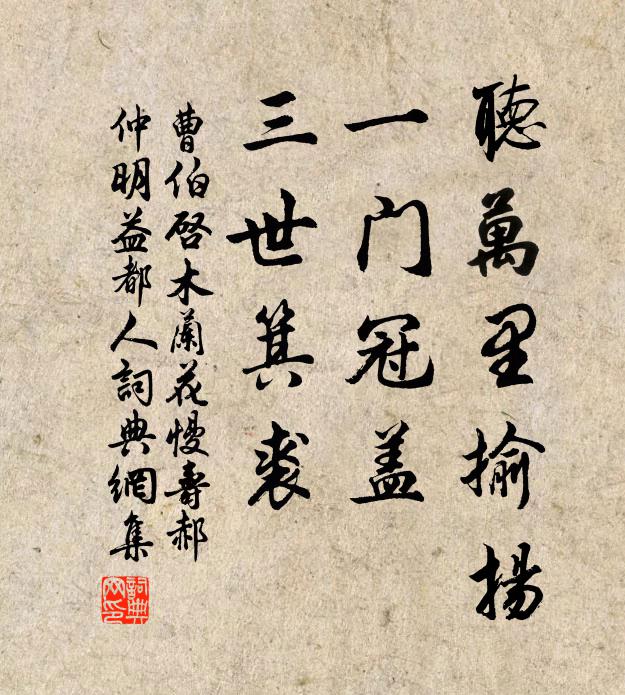 聽萬里揄揚
一门冠盖
三世箕裘
曹伯啓木蘭花慢壽郝
仲明益都人詞典網集
詞典網印